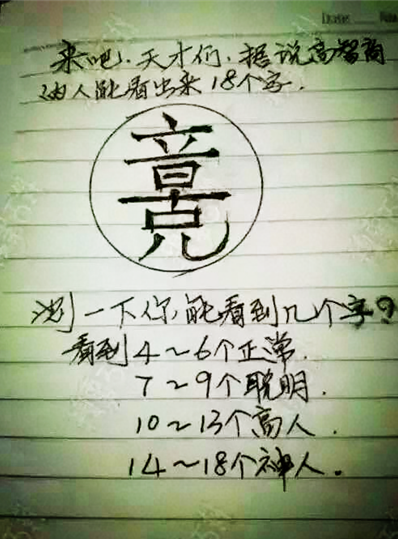 来吧.天才们.据说高智商
的人能看出来18个字.
测一下你能看到几个字?
看到4~6个正常.
7~9个聪明.
10~13个高人.
14~18个神人.